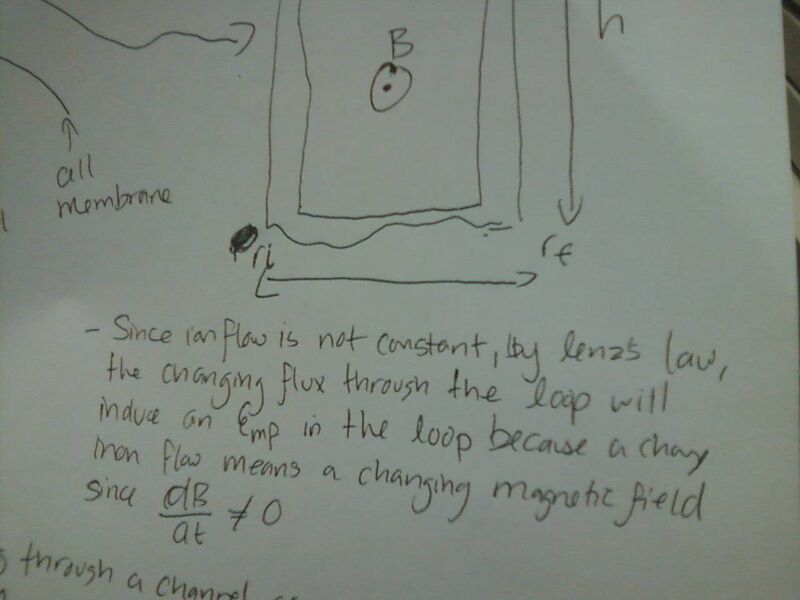 h
B
all
membrane
ri
rf
- Since ion flow is not constant, by lenz's law,
the changing flux through the loop will
induce an Emp in the loop because a
flow means a changing magnetic field
since dB/dt ≠ 0
through a channel